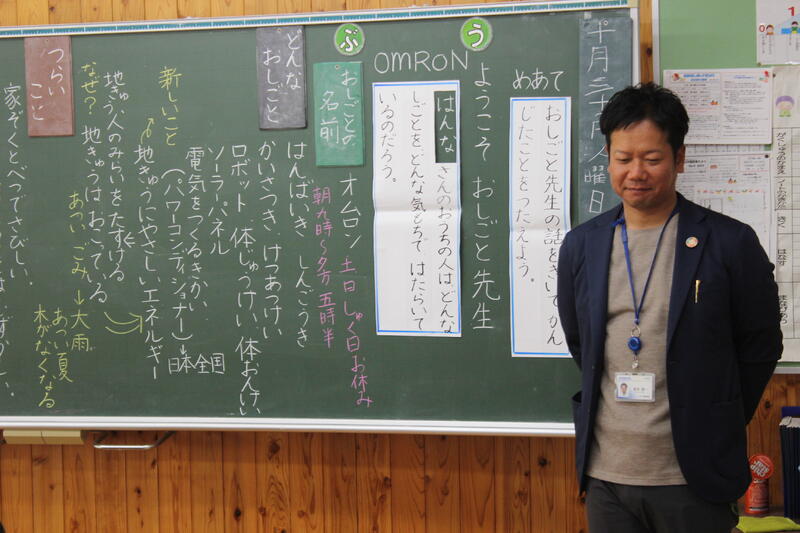 十月
曜日
めあて
おしごと先生の話をきいて かん
じたことをつたえよう。
う
ようこそ おしごと先生
OMRON
はんな さんのおうちの人は、どんな
しごとを、どんな気もちで、はたらいて
いるのだろう。
ぶ
おしごとの
名前
オムロン 土日しゅく日お休み
朝九時〜夕方 五時半
どんな
おしごと
はんばいき しんごうき
かいさつき、けつあつけい
ロボット 体じゅうけい、体おんけい
ソーラーパネル
電気をつくるきかい
(パワーコンディショナー)→日本全国
新しいこと
地きゅうにやさしいエネルギー
地きゅう人のみらいをたすける
なぜ? 地きゅうはおこっている
あつい ごみ→大雨
あつい夏
木がなくなる
つらい
こと
家ぞくとべつでさびしい。